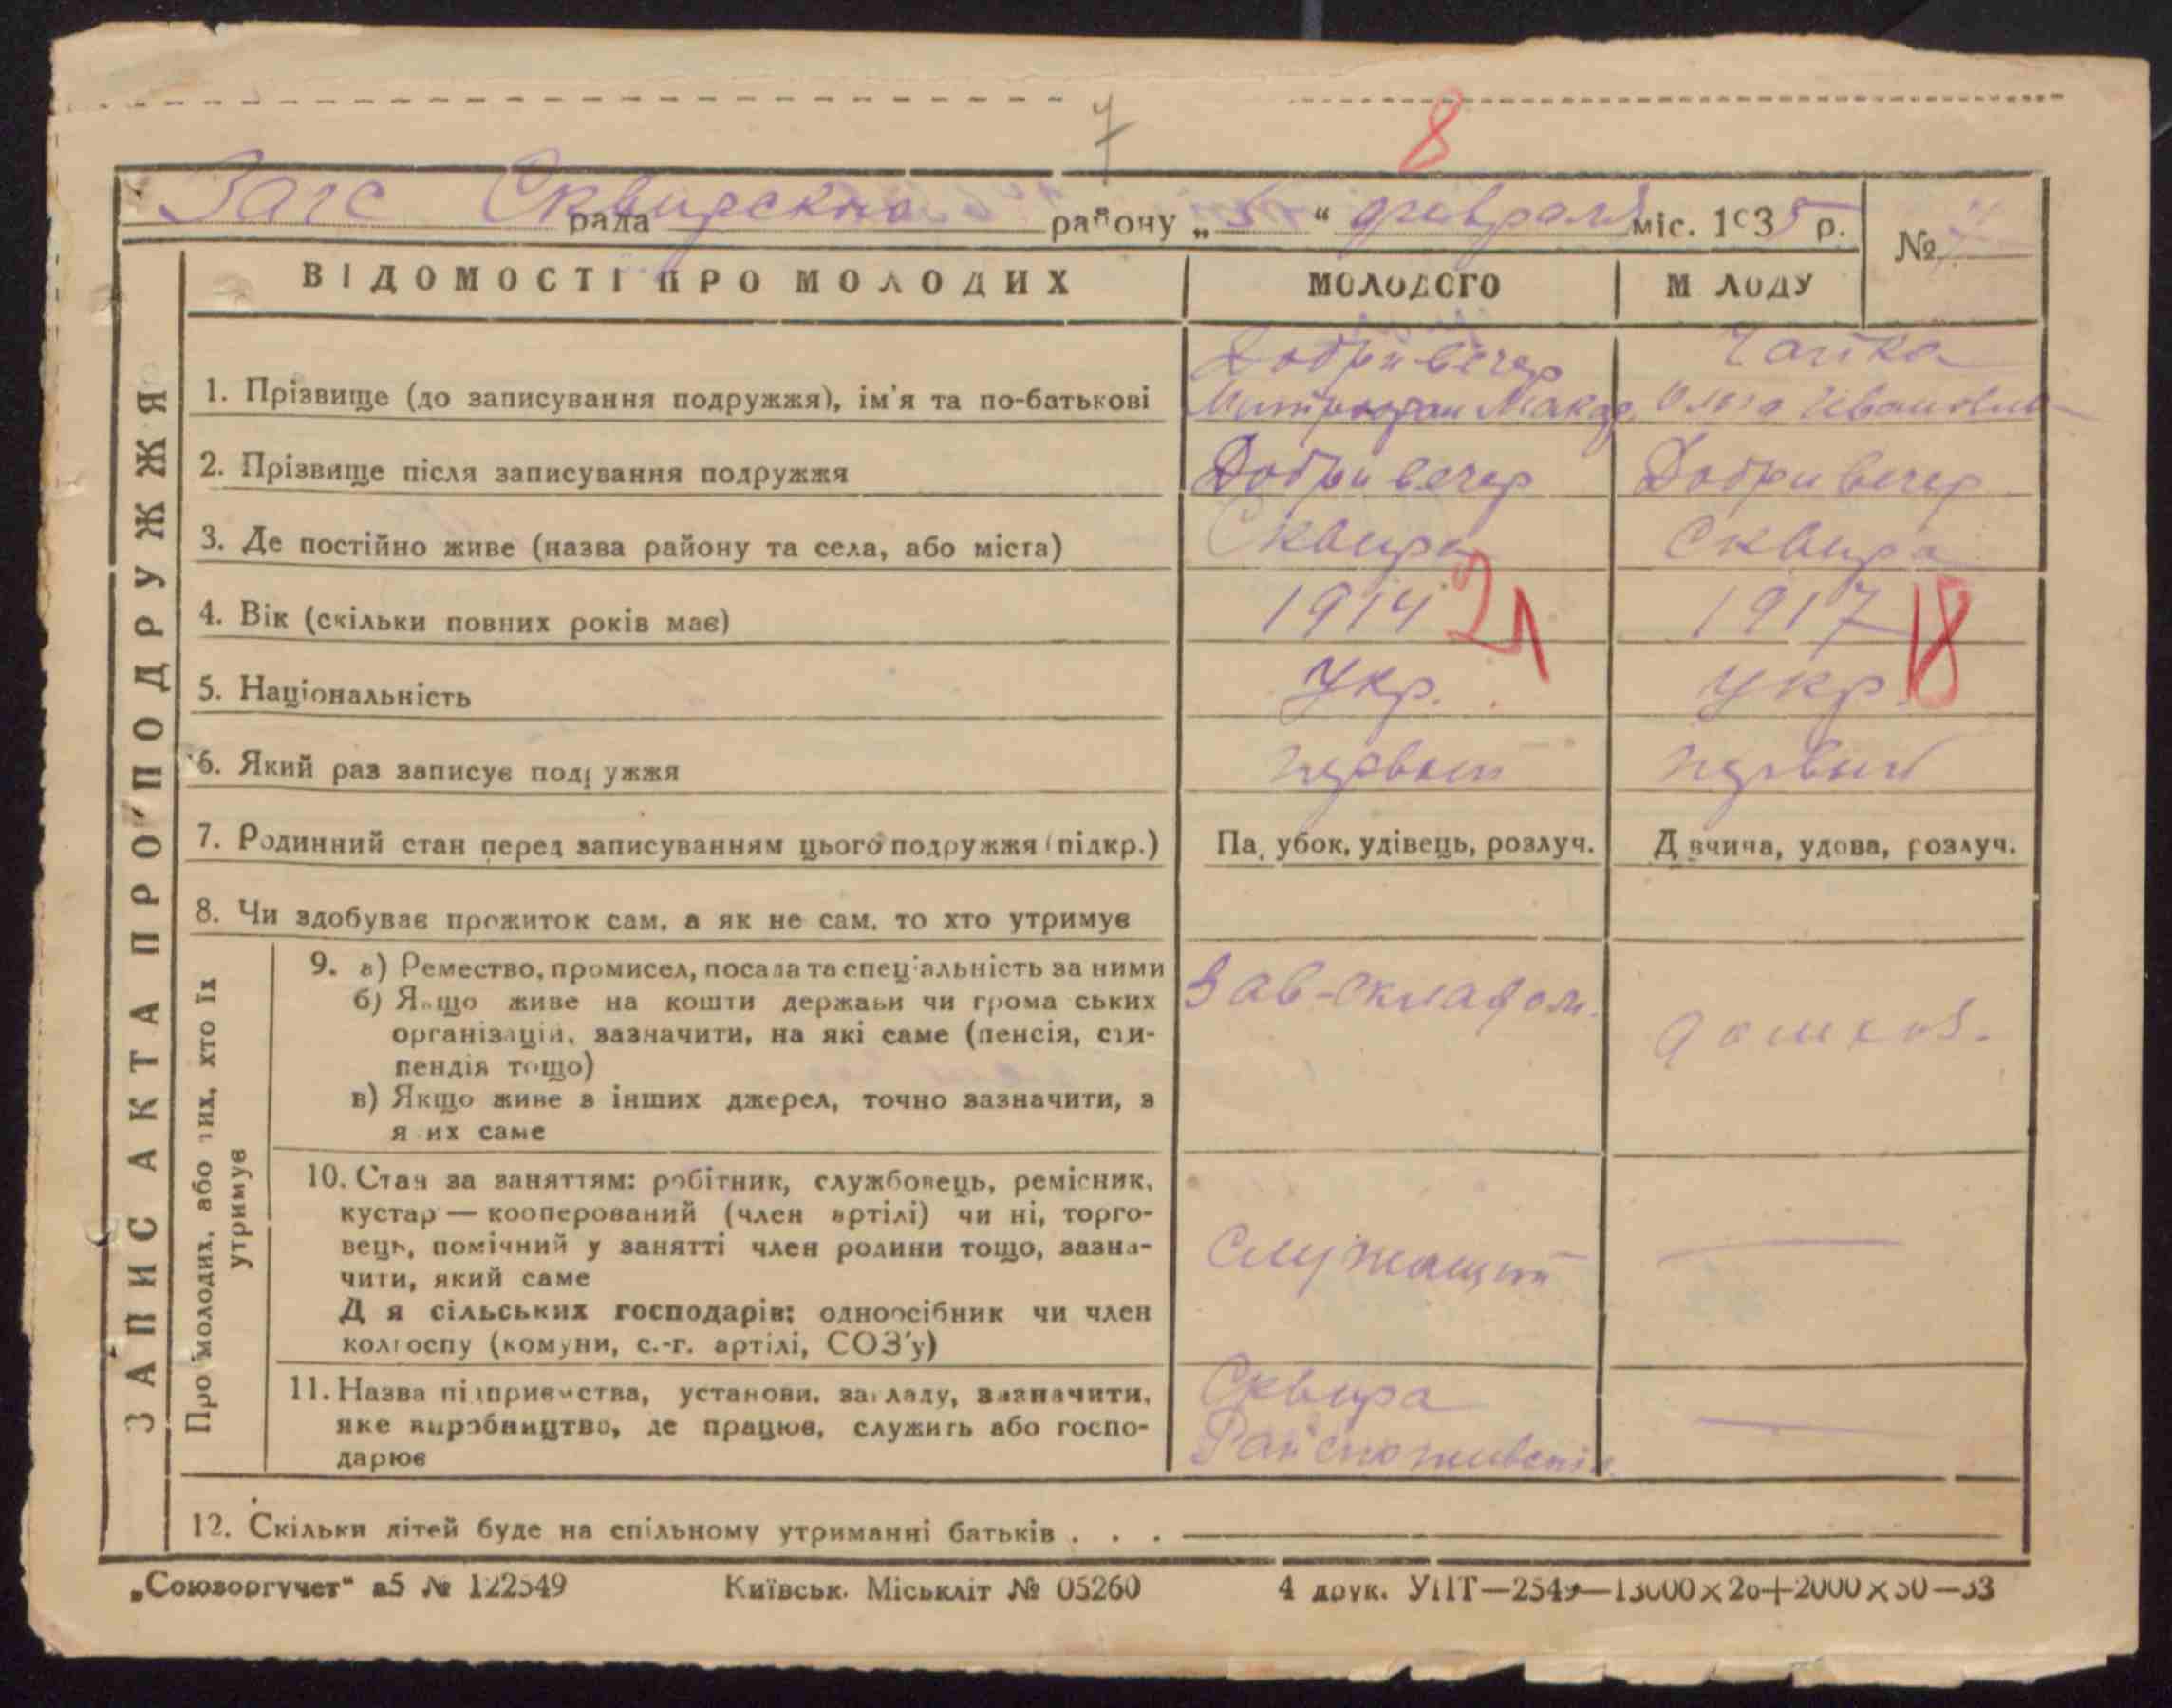 7 8
Загс рада Сквирского району „5“ февраля міс. 1935 р.
№ 7
ВІДОМОСТІ ПРО МОЛОДИХ МОЛОДОГО М ЛОДУ
ЗАПИС АКТА ПРО ПОДРУЖЖЯ
Добривечер Чайка
1. Прізвище (до записування подружжя), ім'я та по-батькові Митрофан Макар. Ольга Ивановна
2. Прізвище після записування подружжя Добривечер Добривечер
3. Де постійно живе (назва району та села, або міста) Сквира Сквира
4. Вік (скільки повних років має) 1914 21 1917 18
5. Національність Укр. Укр.
6. Який раз записує под ужжя первый первый
7. Родинний стан перед записуванням цього подружжя (підкр.) Па убок, удівець, розлуч. Д вчина, удова, розлуч.
8. Чи здобуває прожиток сам, а як не сам, то хто утримує
Про молодих, або тих, хто їх
утримує
9. а) Ремество, промисел, посада та спец'альність за ними Зав-складом.
б) Я що живе на кошти держави чи грома ських
організацій, зазначити, на які саме (пенсія, сти- домхоз.
пендія тощо)
в) Якщо живе з інших джерел, точно зазначити, з
я их саме
10. Стан за заняттям: робітник, службовець, ремісник,
кустар — кооперований (член артілі) чи ні, торго-
вець, помічний у занятті член родини тощо, зазна- Служащий —
чити, який саме
Д я сільських господарів: одноосібник чи член
колгоспу (комуни, с.-г. артілі, СОЗ'у)
11. Назва підприємства, установи, закладу, зазначити, Сквира
яке виробництво, де працює, служить або госпо- Райспоживспіл. —
дарює
12. Скільки дітей буде на спільному утриманні батьків . . .
„Союзоргучет“ а5 № 122549 Київськ. Міськліт № 05260 4 друк. УПТ—2549—13000×20+2000×50—33